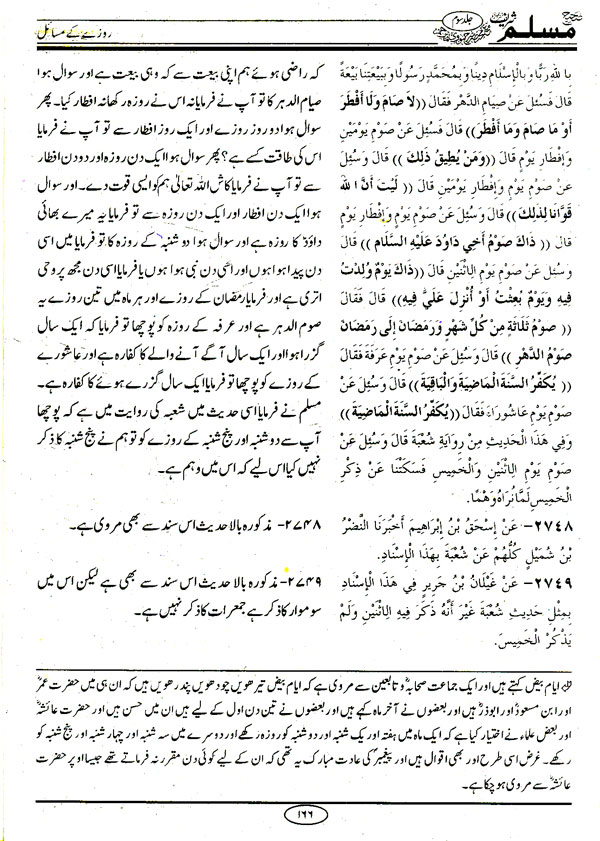 صحیح مسلم شریف
جلد سوم
روزے کے مسائل
بِاللَّهِ رَبًّا وَبِالْإِسْلَامِ دِينًا وَبِمُحَمَّدٍ رَسُولًا وَبِبَيْعَتِنَا بَيْعَةً
قَالَ فَسُئِلَ عَنْ صِيَامِ الدَّهْرِ فَقَالَ (( لَا صَامَ وَلَا أَفْطَرَ
أَوْ مَا صَامَ وَمَا أَفْطَرَ)) قَالَ فَسُئِلَ عَنْ صَوْمِ يَوْمَيْنِ
وَإِفْطَارِ يَوْمٍ قَالَ ((وَمَنْ يُطِيقُ ذٰلِكَ )) قَالَ وَسُئِلَ
عَنْ صَوْمِ يَوْمٍ وَإِفْطَارِ يَوْمَيْنِ قَالَ (( لَيْتَ أَنَّ اللهَ
قَوَّانَا لِذٰلِكَ )) قَالَ وَسُئِلَ عَنْ صَوْمِ يَوْمٍ وَإِفْطَارِ يَوْمٍ
قَالَ (( ذَاكَ صَوْمُ أَخِي دَاوُدَ عَلَيْهِ السَّلَام )) قَالَ
وَسُئِلَ عَنْ صَوْمِ يَوْمِ الِاثْنَيْنِ قَالَ ((ذَاكَ يَوْمٌ وُلِدْتُ
فِيهِ وَيَوْمٌ بُعِثْتُ أَوْ أُنْزِلَ عَلَيَّ فِيهِ)) قَالَ فَقَالَ
(( صَوْمُ ثَلَاثَةٍ مِنْ كُلِّ شَهْرٍ وَرَمَضَانَ إِلَى رَمَضَانَ
صَوْمُ الدَّهْرِ )) قَالَ وَسُئِلَ عَنْ صَوْمِ يَوْمِ عَرَفَةَ فَقَالَ
(( يُكَفِّرُ السَّنَةَ الْمَاضِيَةَ وَالْبَاقِيَةَ )) قَالَ وَسُئِلَ عَنْ
صَوْمِ يَوْمِ عَاشُورَاءَ فَقَالَ ((يُكَفِّرُ السَّنَةَ الْمَاضِيَةَ ))
وَفِي هٰذَا الْحَدِيثِ مِنْ رِوَايَةِ شُعْبَةَ قَالَ وَسُئِلَ عَنْ
صَوْمِ يَوْمِ الِاثْنَيْنِ وَالْخَمِيسِ فَسَكَتْنَا عَنْ ذِكْرِ
الْخَمِيسِ لَمَّا نُرَاهُ وَهْمًا.
٢٧٤٨- عَنْ إِسْحٰقَ بْنُ إِبْرَاهِيمَ أَخْبَرَنَا النَّضْرُ
بْنُ شُمَيْلٍ كُلُّهُمْ عَنْ شُعْبَةَ بِهٰذَا الْإِسْنَادِ.
٢٧٤٩- عَنْ غَيْلَانُ بْنُ جَرِيرٍ فِي هٰذَا الْإِسْنَادِ
بِمِثْلِ حَدِيثِ شُعْبَةَ غَيْرَ أَنَّهُ ذَكَرَ فِيهِ الِاثْنَيْنِ وَلَمْ
يَذْكُرْ الْخَمِيسَ.
کہ راضی ہوئے ہم اپنی بیعت سے کہ وہی بیعت ہے اور سوال ہوا
صیام الدہر کا تو آپ نے فرمایا نہ اس نے روزہ رکھا نہ افطار کیا۔ پھر
سوال ہوا دو روز روزے اور ایک روز افطار سے تو آپ نے فرمایا
اس کی طاقت کسے ہے؟ پھر سوال ہوا ایک دن روزہ اور دو دن افطار
سے تو آپ نے فرمایا کاش اللہ تعالیٰ ہم کو ایسی قوت دے۔ اور سوال
ہوا ایک دن افطار اور ایک دن روزہ سے تو فرمایا یہ میرے بھائی
داؤدؑ کا روزہ ہے اور سوال ہوا دو شنبہ کے روزہ کا تو فرمایا میں اسی
دن پیدا ہوا ہوں اور اسی دن نبی ہوا ہوں یا فرمایا اسی دن مجھ پر وحی
اتری ہے اور فرمایا رمضان کے روزے اور ہر ماہ میں تین روزے یہ
صوم الدہر ہے اور عرفہ کے روزہ کو پوچھا تو فرمایا کہ ایک سال
گزرا ہوا اور ایک سال آگے آنے والے کا کفارہ ہے اور عاشورے
کے روزے کو پوچھا تو فرمایا ایک سال گزرے ہوئے کا کفارہ ہے۔
مسلم نے فرمایا اسی حدیث میں شعبہ کی روایت میں ہے کہ پوچھا
آپ سے دو شنبہ اور پنج شنبہ کے روزے کو تو ہم نے پنج شنبہ کا ذکر
نہیں کیا اس لیے کہ اس میں وہم ہے۔
۲۷۴۸- مذکورہ بالا حدیث اس سند سے بھی مروی ہے۔
۲۷۴۹- مذکورہ بالا حدیث اس سند سے بھی ہے لیکن اس میں
سوموار کا ذکر ہے جمعرات کا ذکر نہیں ہے۔
ایام بیض کہتے ہیں اور ایک جماعت صحابہؓ و تابعین سے مروی ہے کہ ایام بیض تیرھویں چودھویں پندرھویں ہیں کہ ان ہی میں حضرت عمرؓ
اور ابن مسعودؓ اور ابوذرؓ ہیں اور بعضوں نے آخر ماہ کہے ہیں اور بعضوں نے تین دن اول کے لیے ہیں ان میں حسن ہیں اور حضرت عائشہؓ
اور بعض علماء نے اختیار کیا ہے کہ ایک ماہ میں ہفتہ اور یک شنبہ اور دو شنبہ کو روزہ رکھے اور دوسرے میں سہ شنبہ اور چہار شنبہ اور پنج شنبہ کو
رکھے۔ غرض اسی طرح اور بھی اقوال ہیں اور پیغمبرؐ کی عادت مبارک یہ تھی کہ ان کے لیے کوئی دن مقرر نہ فرماتے تھے جیسا اوپر حضرت
عائشہؓ سے مروی ہو چکا ہے۔
۱۶۶